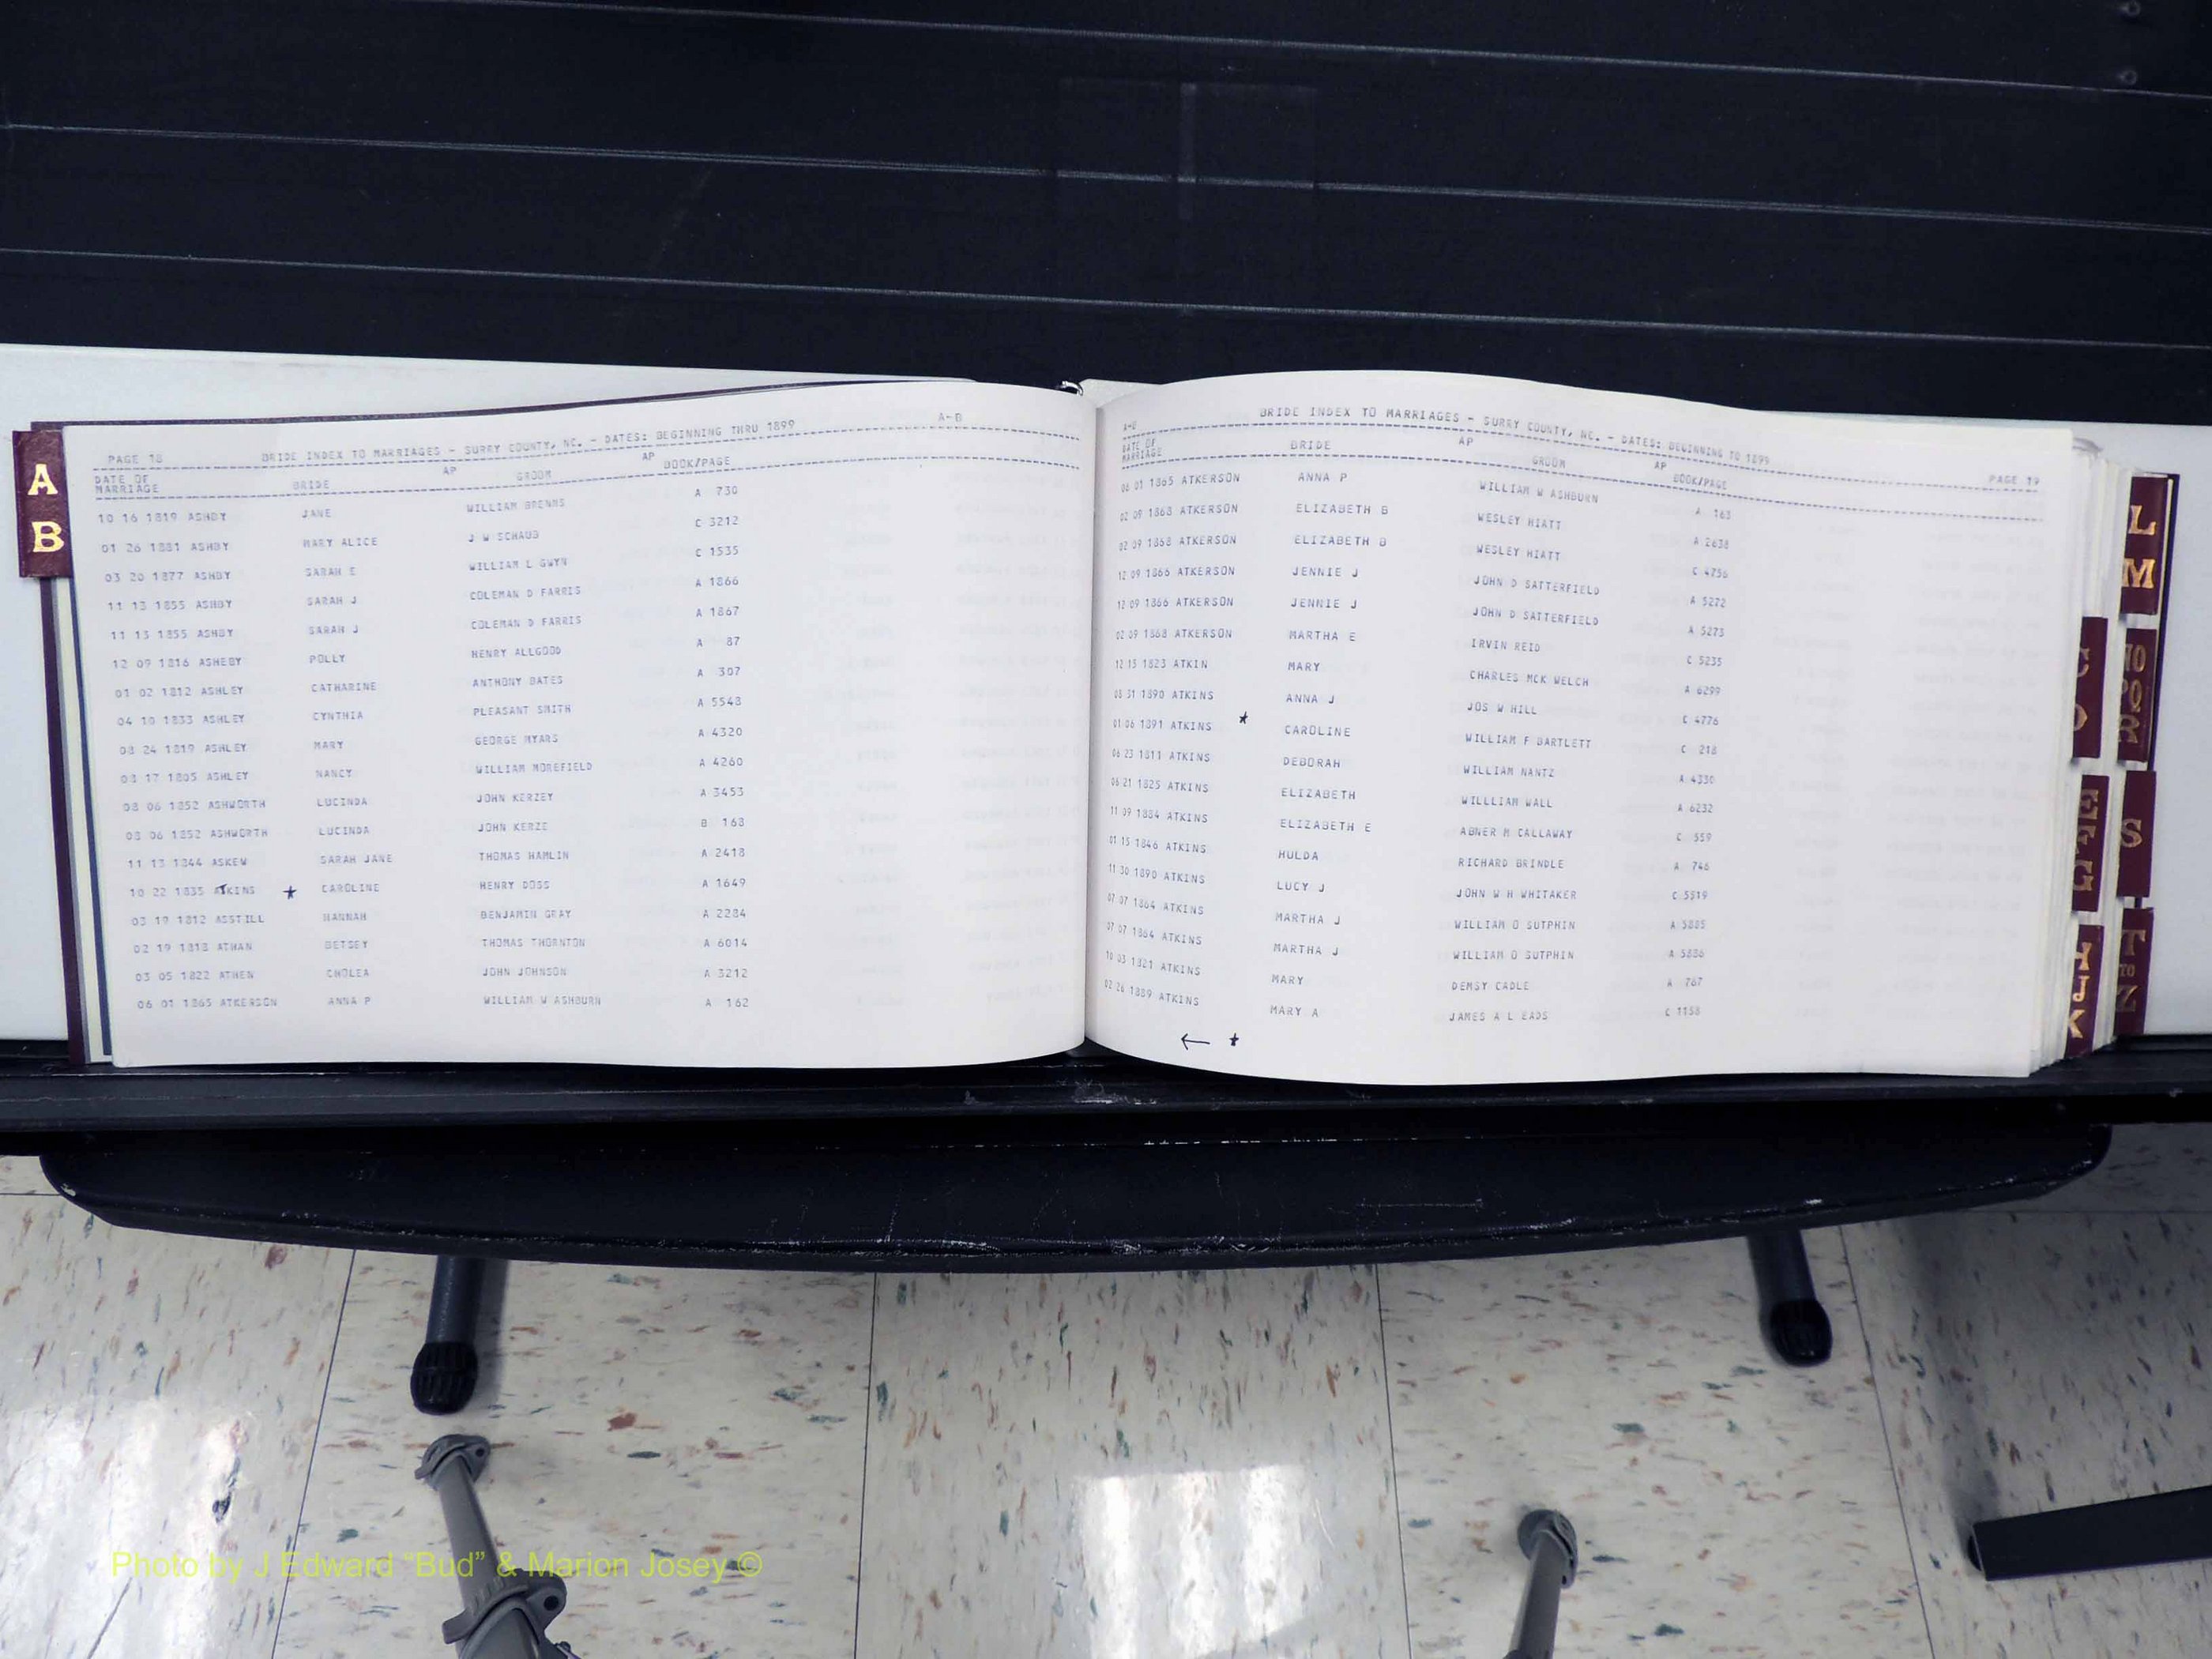 A
B
PAGE 18 BRIDE INDEX TO MARRIAGES - SURRY COUNTY, NC. - DATES: BEGINNING THRU 1899 A-B
DATE OF MARRIAGE BRIDE AP GROOM AP BOOK/PAGE
10 16 1819 ASHBY JANE WILLIAM A 730
01 26 1881 ASHBY MARY ALICE J W SCHAUB C 3212
03 20 1877 ASHBY SARAH E WILLIAM L GWYN C 1535
11 13 1855 ASHBY SARAH J COLEMAN D FARRIS A 1866
11 13 1855 ASHBY SARAH J COLEMAN D FARRIS A 1867
12 09 1816 ASHEBY POLLY HENRY ALLGOOD A 87
01 02 1812 ASHLEY CATHARINE ANTHONY BATES A 307
04 10 1833 ASHLEY CYNTHIA PLEASANT SMITH A 5548
08 24 1819 ASHLEY MARY GEORGE MYARS A 4320
08 17 1805 ASHLEY NANCY WILLIAM MOREFIELD A 4260
08 06 1852 ASHWORTH LUCINDA JOHN KERZEY A 3453
08 06 1852 ASHWORTH LUCINDA JOHN KERZE B 168
11 13 1844 ASKEW SARAH JANE THOMAS HAMLIN A 2418
10 22 1835 ATKINS ★ CAROLINE HENRY DOSS A 1649
03 19 1812 ASSTILL HANNAH BENJAMIN GRAY A 2284
02 19 1818 ATHAN BETSEY THOMAS THORNTON A 6014
03 05 1822 ATHEN CHOLEA JOHN JOHNSON A 3212
06 01 1865 ATKERSON ANNA P WILLIAM W ASHBURN A 162
A-B BRIDE INDEX TO MARRIAGES - SURRY COUNTY, NC. - DATES: BEGINNING TO 1899 PAGE 19
DATE OF MARRIAGE BRIDE AP GROOM AP BOOK/PAGE
06 01 1865 ATKERSON ANNA P WILLIAM W ASHBURN A 163
02 09 1868 ATKERSON ELIZABETH B WESLEY HIATT A 2638
02 09 1868 ATKERSON ELIZABETH B WESLEY HIATT C 4756
12 09 1866 ATKERSON JENNIE J JOHN D SATTERFIELD A 5272
12 09 1866 ATKERSON JENNIE J JOHN D SATTERFIELD A 5273
02 09 1868 ATKERSON MARTHA E IRVIN REID C 5235
12 13 1823 ATKIN MARY CHARLES MCK WELCH A 6299
08 31 1890 ATKINS ANNA J JOS W HILL C 4776
01 06 1891 ATKINS ★ CAROLINE WILLIAM F BARTLETT C 218
06 23 1811 ATKINS DEBORAH WILLIAM NANTZ A 4330
06 21 1825 ATKINS ELIZABETH WILLLIAM WALL A 6232
11 09 1884 ATKINS ELIZABETH E ABNER M CALLAWAY C 559
01 15 1846 ATKINS HULDA RICHARD BRINDLE A 746
11 30 1890 ATKINS LUCY J JOHN W H WHITAKER C 5519
07 07 1864 ATKINS MARTHA J WILLIAM O SUTPHIN A 5885
07 07 1864 ATKINS MARTHA J WILLIAM O SUTPHIN A 5886
10 03 1821 ATKINS MARY DEMSY CADLE A 767
02 26 1889 ATKINS MARY A JAMES A L EADS C 1158
← ★
L
M
S
T
TO
Z
Photo by J Edward “Bud” & Marion Josey ©